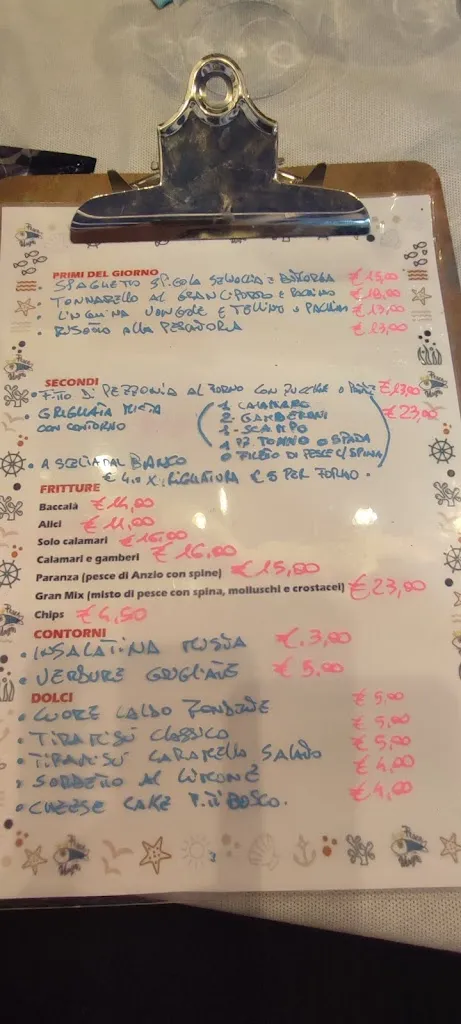 PRIMI DEL GIORNO
• SPAGHETTO SPIGOLA E € 15,00
• TONNARELLO AL GRANCIPORRO E PACHINO € 18,00
• LINGUINA VONGOLE E PACHINO € 13,00
• RISOTTO ALLA PESCATORA € 13,00
SECONDI
• DI AL FORNO CON ZUCCHINE O € 13,00
• GRIGLIATA MISTA € 23,00
CON CONTORNO
1 CALAMARO
2 GAMBERONI
1 SCAMPO
1 PZ. TONNO O SPADA
O FILETTO DI PESCE C/SPINA
• A SCELTA DAL BANCO
€ X GRIGLIATURA € 5 PER FORNO.
FRITTURE
Baccalà € 14,00
Alici € 11,00
Solo calamari € 16,00
Calamari e gamberi € 16,00
Paranza (pesce di Anzio con spine) € 15,00
Gran Mix (misto di pesce con spina, molluschi e crostacei) € 23,00
Chips € 4,50
CONTORNI
• INSALATINA MISTA € 3,00
• VERDURE GRIGLIATE € 5,00
DOLCI
• CUORE CALDO FONDENTE € 5,00
• TIRAMISÙ CLASSICO € 5,00
• TIRAMISÙ CARAMELLO SALATO € 5,00
• SORBETTO AL LIMONE € 4,00
• CHEESE CAKE F.TTI BOSCO. € 4,00